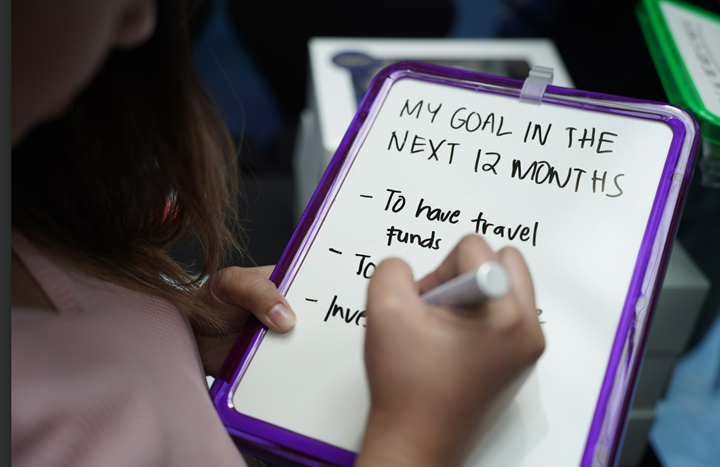 MY GOAL IN THE
NEXT 12 MONTHS
- To have travel
funds
- To
-